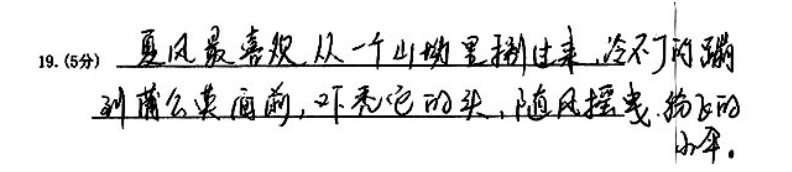 19. (5分) 夏风最喜欢从一个山坳里捌过来,冷不丁的蹦
到蒲公英面前,吓秃它的头,随风摇曳.纷飞的
小伞。